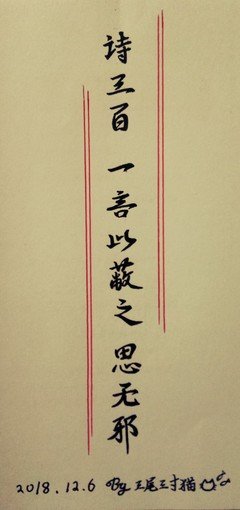 诗三百 一言以蔽之 思无邪
2018.12.6 By 三尾三寸猫